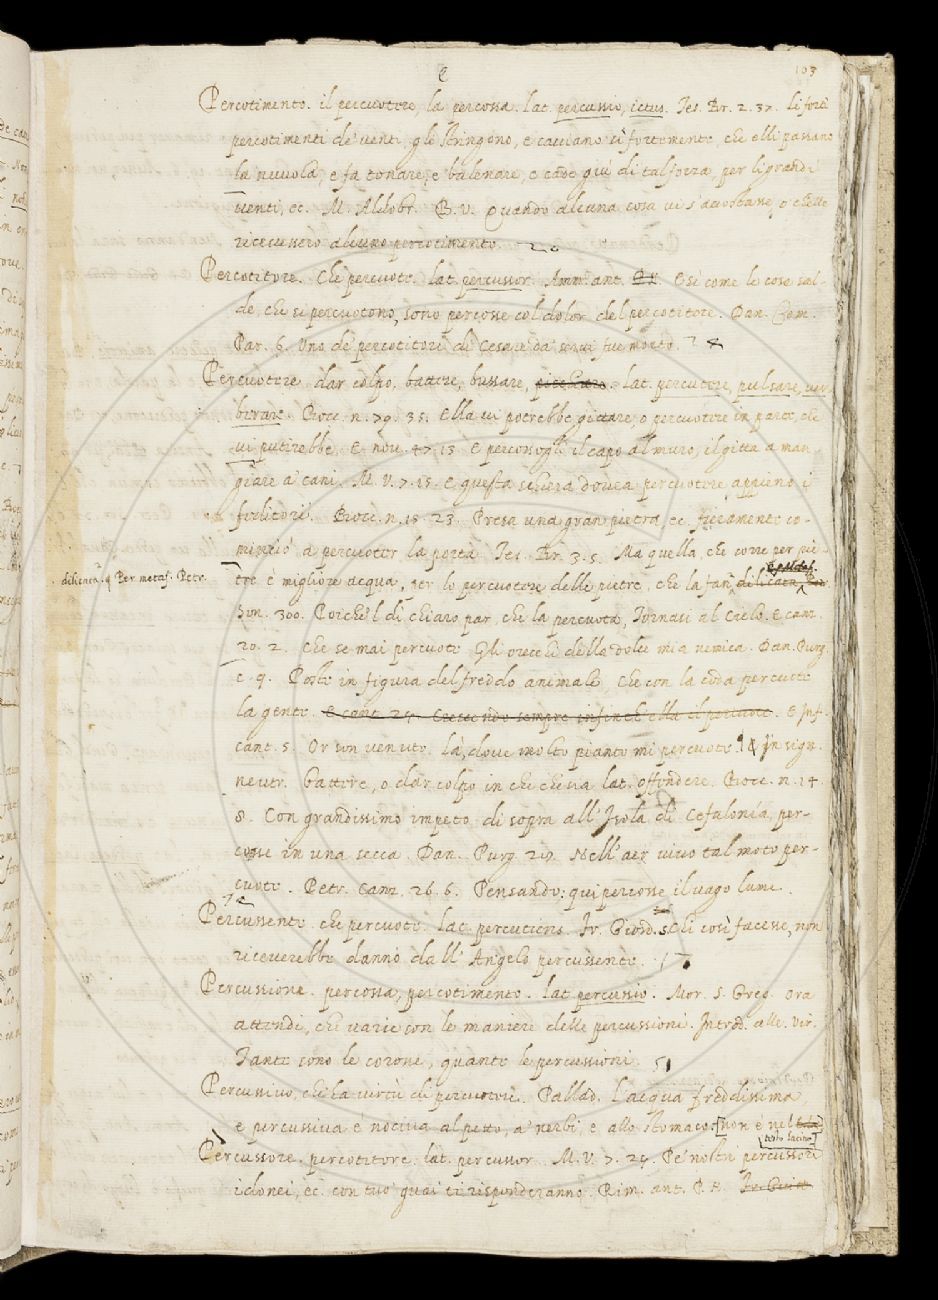 103
P
Percotimento. il percuotere, la percossa. lat. percussio, ictus. Tes. Br. 2. 37. Li forti
percotimenti de' venti, gli stringono, e cacciano sì fortemente, che elli passano
la nuvola, e fa tonare, e balenare, e cade giù di tal forza, per li grandi
venti, ec. M. Aldobr. B. V. Quando alcuna cosa vi s'accostasse, o ch'elle
ricevessero alcuno percotimento.
Percotitore. Che percuote. lat. percussor. Amm. ant. E sì come le cose sal-
de, che si percuotono, sono percosse col dolor del percotitore. Dan. Com.
Par. 6. Uno de' percotitori di Cesare da servi fue morto.
Percuotere dar colpo, battere, bussare, picchiare. lat. percutere, pulsare, ver
berare. Bocc. n. 79. 35. Ella vi potrebbe gittare, o percuotere in parte, che
vi putirebbe. E nov. 47. 13. E percossogli il capo al muro, il gitta a man-
giare a' cani. M. V. 7. 15. E questa schiera dovea percuotere appieno i
feditori. Bocc. n. 15. 23. Presa una gran pietra, ec. fieramente co-
minciò a percuoter la porta Tes. Br. 3. 5. Ma quella, che corre per pie-
tre è migliore acqua, per lo percuotere delle pietre, che la fan dilicata
Per metaf. Petr.
Son. 300. Poiche'l dì chiaro par, che la percuota, Tornasi al Cielo. E canz.
20. 2. Che se mai percuote Gli orecchi della dolce mia nemica. Dan. Purg.
c. 9. Poste in figura del freddo animale, Che con la coda percuote
la gente. E cant. 25. Crescendo sempre infinch'ella il percuote. E Inf.
cant. 5. Or son venuto, Là, dove molto pianto mi percuote. In sign.
neutr. battere, o dar colpo in che che sia lat. offendere. Bocc. n. 14.
8. Con grandissimo impeto di sopra all'Isola di Cefalonia, per-
cosse in una secca. Dan. Purg. 29. Nell' aer vivo tal moto per-
cuote. Petr. Canz. 26. 6. Pensando: qui percosse il vago lume.
Percussente che percuote. lat. percutiens. Fr. Giord. S. Chi così facesse, non
riceverebbe danno dall' Angelo percussente.
Percussione. percossa, percotimento. lat. percussio. Mor. S. Greg. Ora
attendi, che varie son le maniere delle percussioni. Introd. alle vir.
Tante sono le corone, quante le percussioni.
Percussivo, che ha virtù di percuotere. Pallad. L'acqua freddissima
e percussiva è nociva al petto, a' nerbi, e allo stomaco. [non è nel
testo latino]
Percussore. percotitore. lat. percussor. M. V. 7. 29. De' nobili percussori
idonei, ec. con tuo' guai ti risponderanno. Rim. ant. P. N.